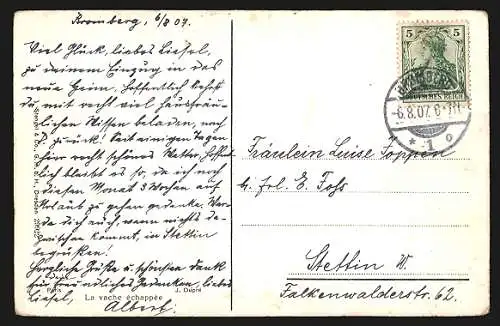 Kromberg, 6/8 07.
Viel Glück, liebes Liesel,
zu deinem Einzug in das
neue Heim. Hoffentlich kehrst
du mit recht viel hausfräu-
lichen Wissen beladen, nach
D zurück! Seit einigen Tagen
hier recht schönes Wetter. Hoffent-
lich bleibt es so, da ich noch
diesen Monat 3 Wochen auf
Urlaub zu gehen gedenke. Wer-
de dich auch, wenn nichts da-
zwischen kommt, in Stettin
begrüßen.
Herzliche Grüße u. schönsten Dank
für freundliches Gedenken, liebes
Liesel,
Albert.
Paris
La vache échappée
J. Dupré
Stengel & Co., G.m.b.H., Dresden
5 5
DEUTSCHES REICH
-6.8.07. 6-7N
* 1 o
Fräulein Luise Foppen
bz. Frl. E. Fohs
Stettin W.
Falkenwalderstr. 62.